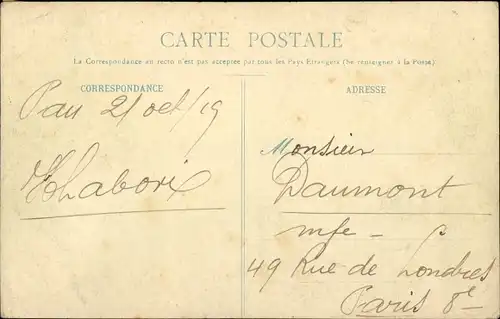 CARTE POSTALE
La Correspondance au recto n'est pas acceptée par tous les Pays Etrangers (Se renseigner à la Poste)
CORRESPONDANCE
ADRESSE
Pau 21 oct/19
Monsieur
Daumont
49 Rue de Londres
Paris 8e